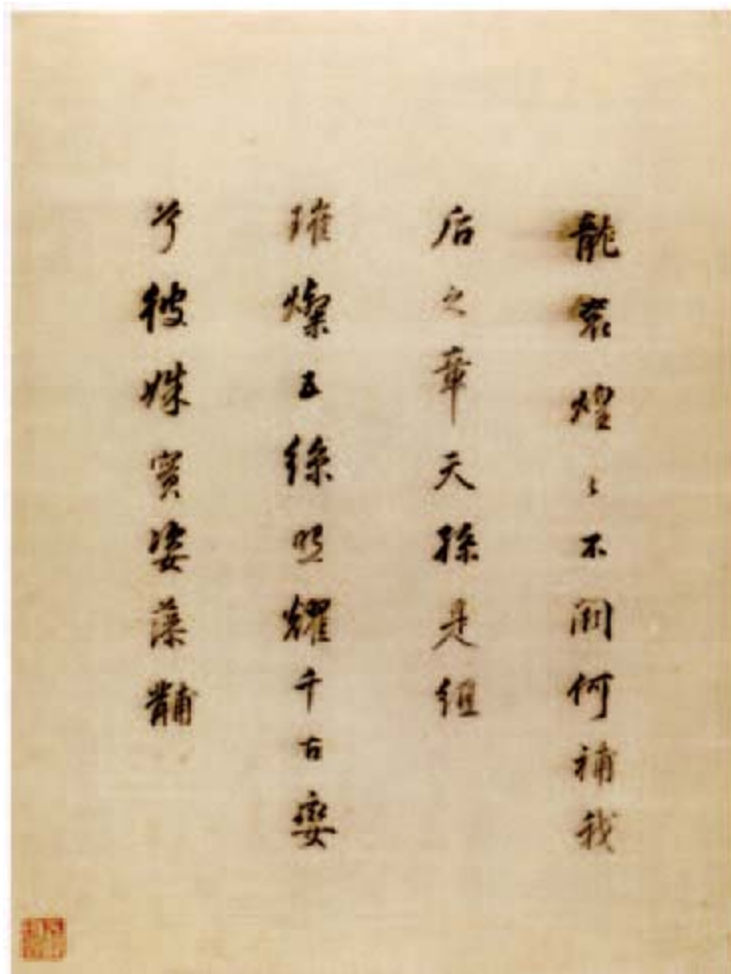 龍袞煌々不闕何補我
后之章天孫是組
璀燦五絲照耀千古孌
兮彼姝實姿藻黼